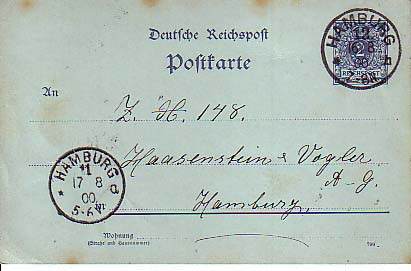 Deutsche Reichspost
Postkarte
HAMBURG
12
8
00
2
REICHSPOST
An
Z. H. 148.
Haasenstein & Vogler
A-G.
Hamburg.
HAMBURG d
*1
17 8
00
5-6 N
Wohnung
(Straße und Hausnummer)